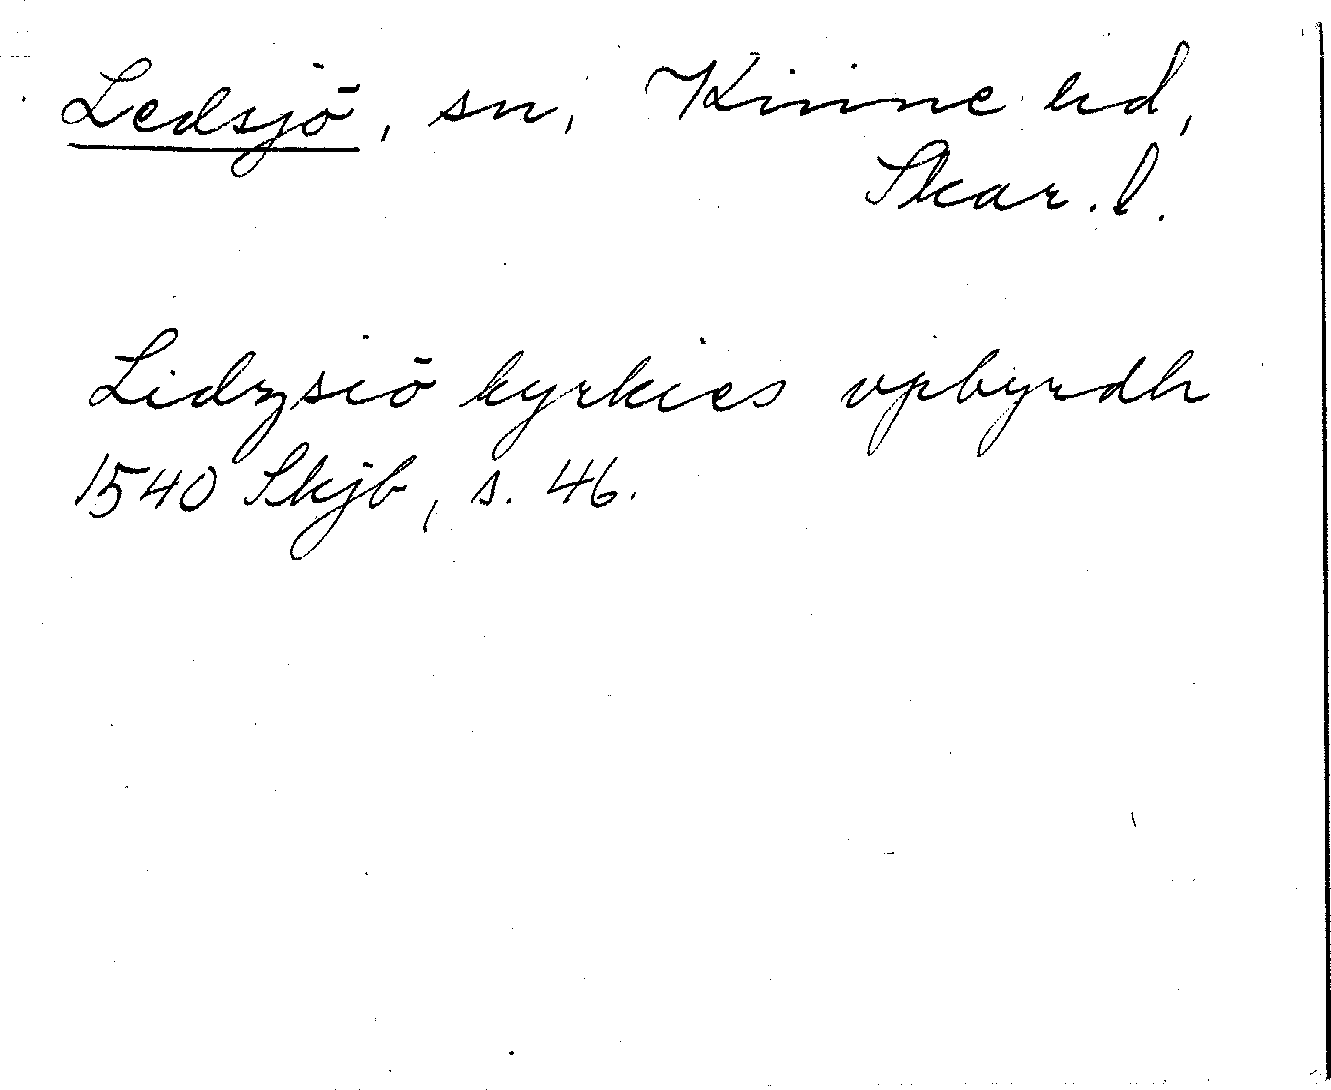 Ledsjö, sn, Kinne hd,
Skar. l.
Lidzsiö kyrkies vpbyrdh
1540 Skjb, s. 46.